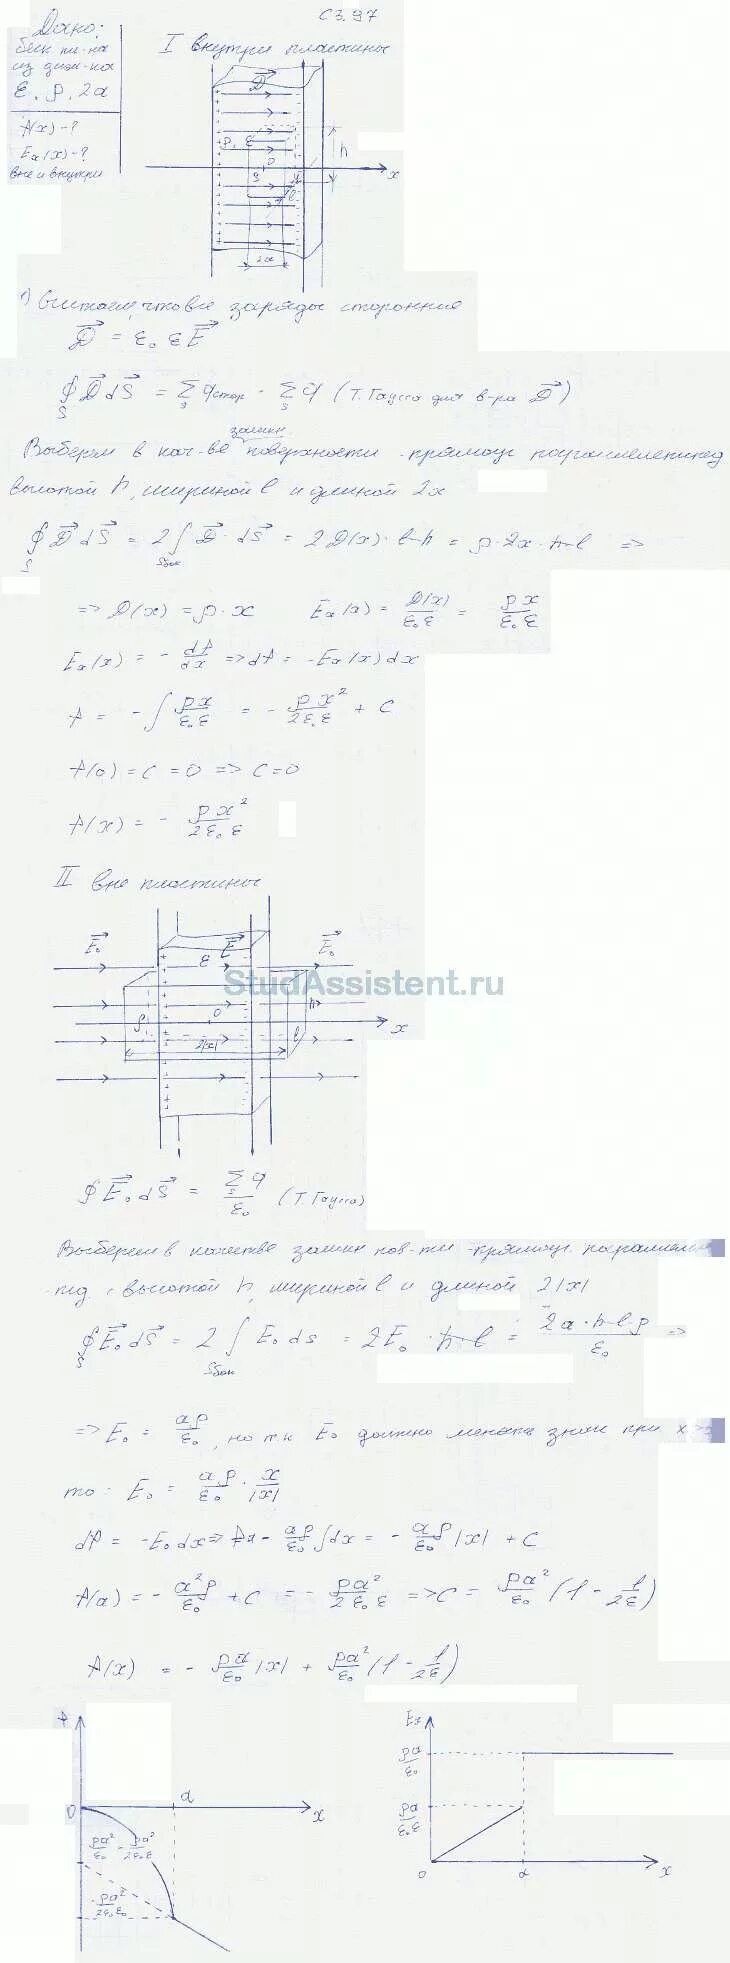 С3.97
Дано:
беск пл-на
из диэл-ка
ε, ρ, 2a
φ(x) - ?
Ex(x) - ?
вне и внутри
I внутри пластины
D
h
x
2x
1) Считаем, что все заряды сторонние
D = ε₀ ε E
∮ D dS = Σ qстор = Σ q (Т. Гаусса для в-ра D)
S
Выберем в кач-ве замкн. поверхности - прямоуг параллелепипед
высотой h, шириной l и длиной 2x
∮ D dS = 2 ∫ D · dS = 2D(x) · l·h = ρ·2x·h·l =>
S Sбок
=> D(x) = ρ·x Ex(x) = D(x)/ε₀ε = ρx/ε₀ε
Ex(x) = - dφ/dx => dφ = -Ex(x)dx
φ = - ∫ ρx/ε₀ε = - ρx²/2ε₀ε + C
φ(0) = C = 0 => C = 0
φ(x) = - ρx²/2ε₀ε
II вне пластины
E₀ ε E E₀
StudAssistent.ru
ρ O h
2|x| l x
∮ E₀ dS = Σ q/ε₀ (Т. Гаусса)
Выберем в качестве замкн пов-ти - прямоуг. параллеле
-пед с высотой h, шириной l и длиной 2|x|
∮ E₀ dS = 2 ∫ E₀ ds = 2E₀ · h·l = 2a·h·l·ρ/ε₀ =>
S Sбок
=> E₀ = aρ/ε₀, но т.к E₀ должно менять знак при x
то: E₀ = aρ/ε₀ · x/|x|
dφ = -E₀dx => φ = - aρ/ε₀ ∫dx = - aρ/ε₀ |x| + C
φ(a) = - a²ρ/ε₀ + C = - ρa²/2ε₀ε => C = ρa²/ε₀ (1 - 1/2ε)
φ(x) = - ρa/ε₀ |x| + ρa²/ε₀ (1 - 1/2ε)
φ
0
a
x
ρa²/ε₀ - ρa²/2ε₀ε
- ρa²/2ε₀ε
Ex
ρa/ε₀
ρa/ε₀ε
0
a
x